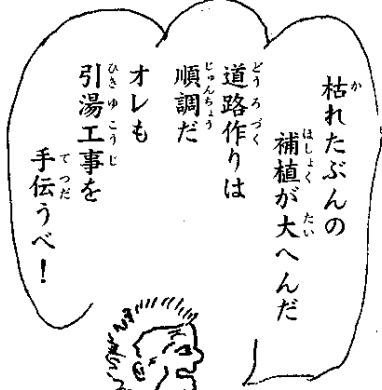 枯れたぶんの
補植が大へんだ
道路作りは
順調だ
オレも
引湯工事を
手伝うべ！